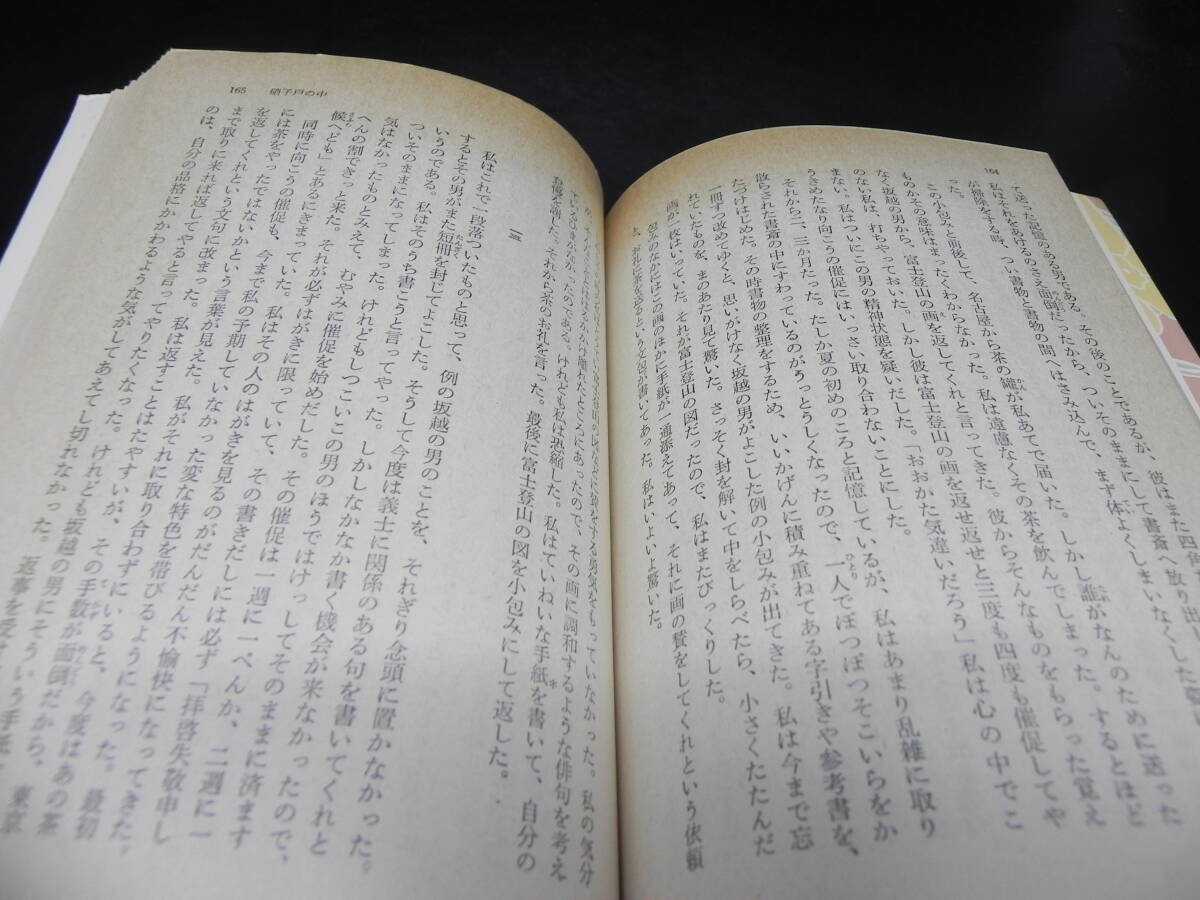 164
て送った記憶のある男である。その後のことであるが、彼はまた四角
私はそれをあけるのさえ面倒だったから、ついそのままにして書斎へ放り出し
が掃除をする時、つい書物と書物の間へはさみ込んで、まず体よくしまいなくした
この小包みと前後して、名古屋から茶の罐が私あてで届いた。しかし誰がなんのために送った
ものかその意味はまったくわからなかった。私は遠慮なくその茶を飲んでしまった。するとほど
なく坂越の男から、富士登山の画を返してくれと言ってきた。彼からそんなものをもらった覚え
のない私は、打ちやっておいた。しかし彼は富士登山の画を返せ返せと三度も四度も催促してや
まない。私はついにこの男の精神状態を疑いだした。「おおかた気違いだろう」私は心の中でこ
うきめたなり向こうの催促にはいっさい取り合わないことにした。
それから二、三か月たった。たしか夏の初めのころと記憶しているが、私はあまり乱雑に取り
散らされた書斎の中にすわっているのがうっとうしくなったので、一人でぽつぽつそこいらをか
たづけはじめた。その時書物の整理をするため、いいかげんに積み重ねてある字引きや参考書を、
一冊ずつ改めてゆくと、思いがけなく坂越の男がよこした例の小包みが出てきた。私は今まで忘
れていたものを、まのあたり見て驚いた。さっそく封を解いて中をしらべたら、小さくたたんだ
画が一枚はいっていた。それが富士登山の図だったので、私はまたびっくりした。
包みのなかにはこの画のほかに手紙が一通添えてあって、それに画の賛をしてくれという依頼
と、お礼に茶を送るという文句が書いてあった。私はいよいよ驚いた。
165 硝子戸の中
をする勇気をもっていなかった。私の気分
ているひまがなかったのである。けれども私は恐縮した。私はていねいな手紙を書いて、自分の
怠慢を謝した。それから茶のお礼を言った。最後に富士登山の図を小包みにして返した。
十三
私はこれで一段落ついたものと思って、例の坂越の男のことを、それぎり念頭に置かなかった。
するとその男がまた短冊を封じてよこした。そうして今度は義士に関係のある句を書いてくれと
いうのである。私はそのうち書こうと言ってやった。しかしなかなか書く機会が来なかったので、
ついそのままになってしまった。けれどもしつこいこの男のほうではけっしてそのままに済ます
気はなかったものとみえて、むやみに催促を始めだした。その催促は一週に一ぺんか、二週に一
ぺんの割できっと来た。それが必ずはがきに限っていて、その書きだしには必ず「拝啓失敬申し
候へども」とあるにきまっていた。私はその人のはがきを見るのがだんだん不愉快になってきた。
同時に向こうの催促も、今まで私の予期していなかった変な特色を帯びるようになった。最初
には茶をやったではないかという言葉が見えた。私がそれに取り合わずにいると、今度はあの茶
を返してくれという文句に改まった。私は返すことはたやすいが、その手数が面倒だから、東京
まで取りに来れば返してやると言ってやりたくなった。けれども坂越の男にそういう手紙
のは、自分の品格にかかわるような気がしてあえてし切れなかった。返事を受